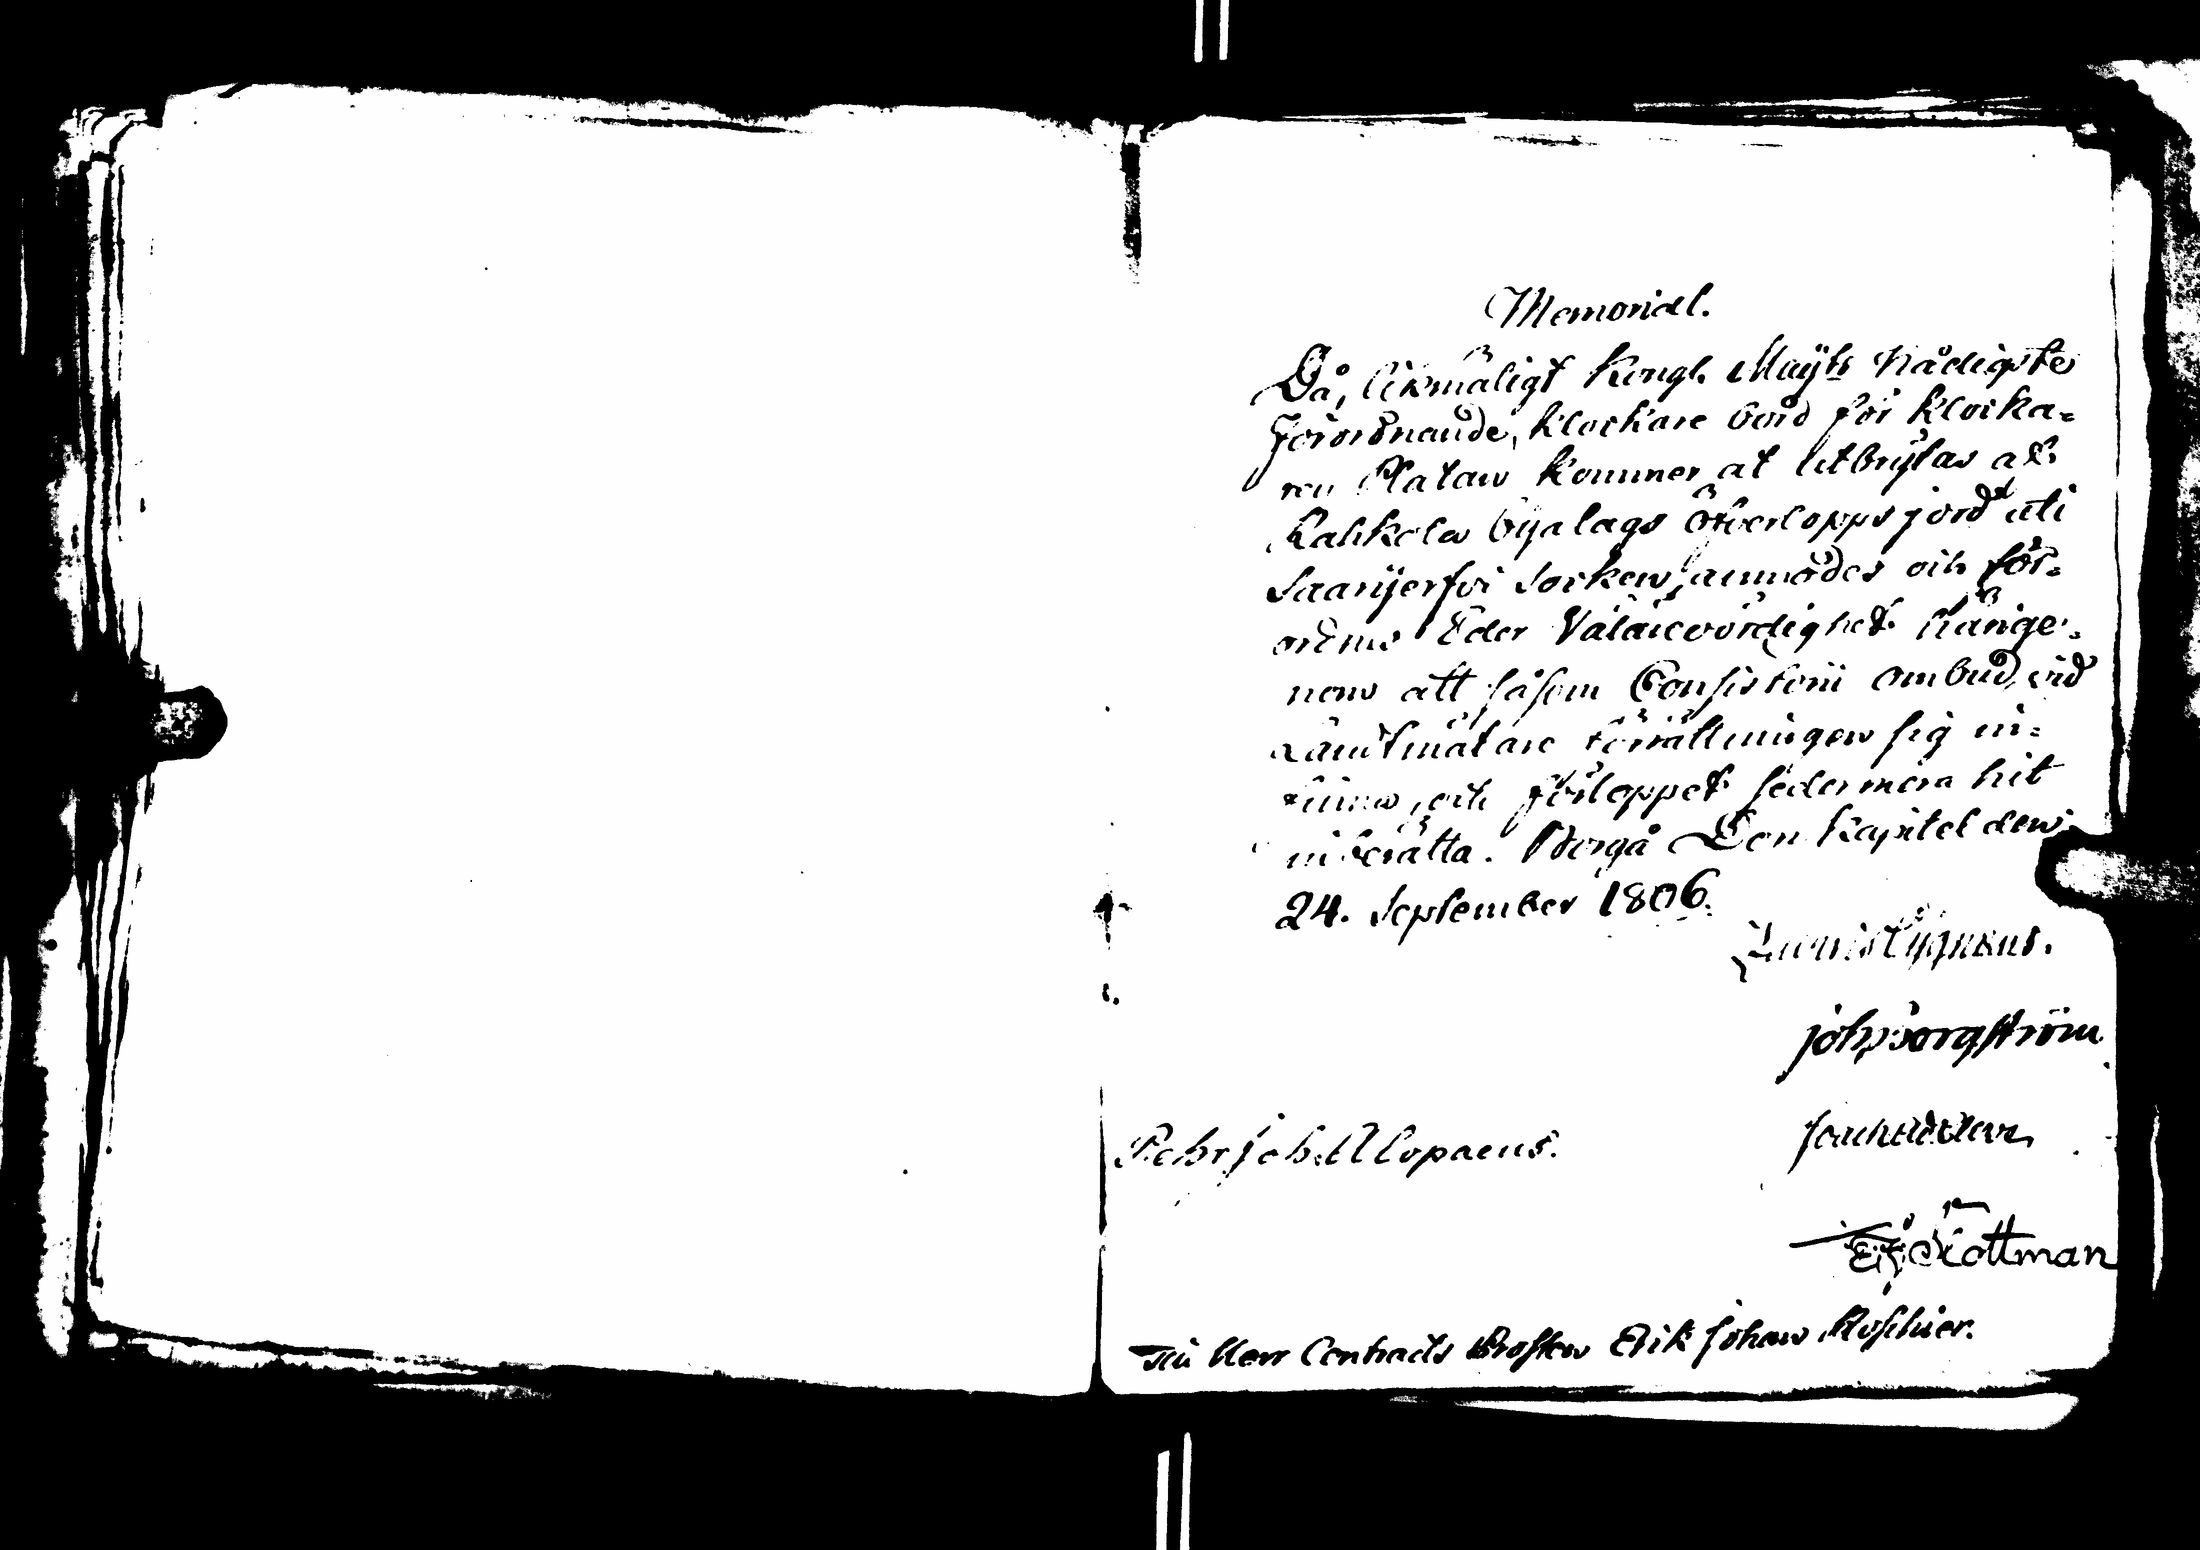 Memorial.
Då, likmäligt Kongl. Maÿts Nådigste
Förordnande, klockare bord för klocka-
ren Platan kommer at utbrytas af
Kahkola byalags öfverloppsjord uti
Saarijerfvi Socken, anmodes och för-
ordnas Eder Välärevördighet härige-
nom att såsom Consistorii ombud, vid
Landtmätare förrättningen sig in-
finna, och förloppet sedermera hit
inberätta. Borgå Dom Kapitel den
24. September 1806.
Zachris Cygnæus.
joh Borgström
Pehr Joh. Alopaeus.
Kottman
Till Herr Contracts Prosten Erik Johan Roschier.